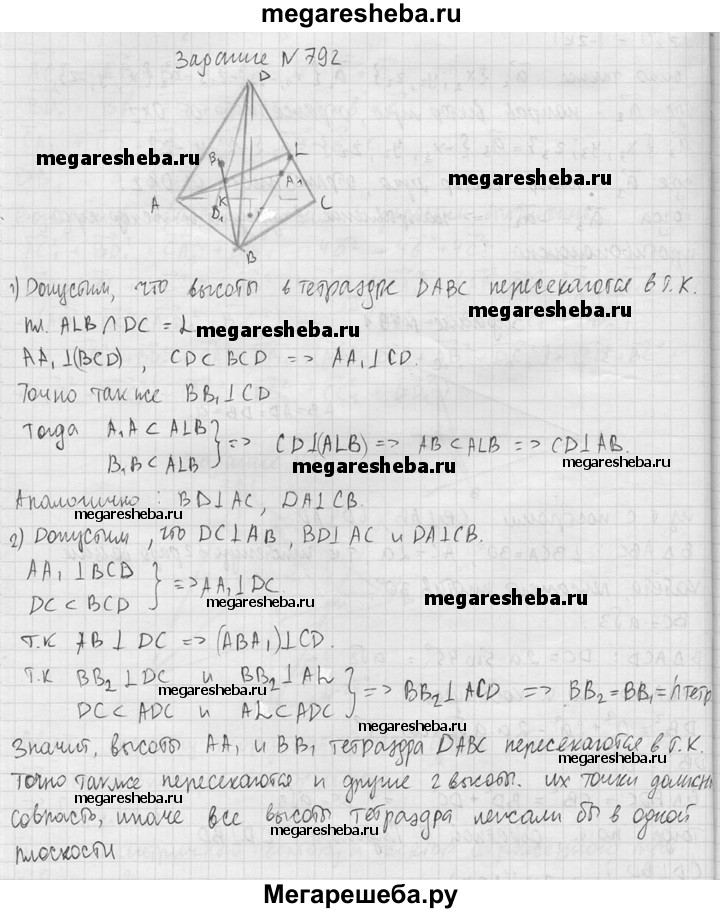 megaresheba.ru
Задание N 792
D
megaresheba.ru
B₁
L
A₁
megaresheba.ru
A
K
D₁
C
B
1) Допустим, что высоты в тетраэдре DABC пересекаются в т. K.
megaresheba.ru
пл. ALB ∩ DC = L
megaresheba.ru
AA₁⊥(BCD), CD⊂BCD => AA₁⊥CD.
Точно так же BB₁⊥CD
megaresheba.ru
Тогда A₁A ⊂ ALB
B₁B ⊂ ALB } => CD⊥(ALB) => AB⊂ALB => CD⊥AB.
megaresheba.ru
megaresheba.ru
Аналогично: BD⊥AC, DA⊥CB.
megaresheba.ru
2) Допустим, что DC⊥AB, BD⊥AC и DA⊥CB.
AA₁⊥BCD
DC⊂BCD } => AA₁⊥DC
megaresheba.ru
megaresheba.ru
Т.К AB⊥DC => (ABA₁)⊥CD.
Т.К BB₂⊥DC и BB₂⊥AL
megaresheba.ru
DC⊂ADC и AL⊂ADC } => BB₂⊥ACD => BB₂=BB₁=h тетр
megaresheba.ru
Значит, высоты AA₁ и BB₁ тетраэдра DABC пересекаются в т. K.
megaresheba.ru
Точно также пересекаются и другие 2 высоты. их точки должны
megaresheba.ru
совпасть, иначе все высоты тетраэдра лежали бы в одной
megaresheba.ru
плоскости
Мегарешеба.ру